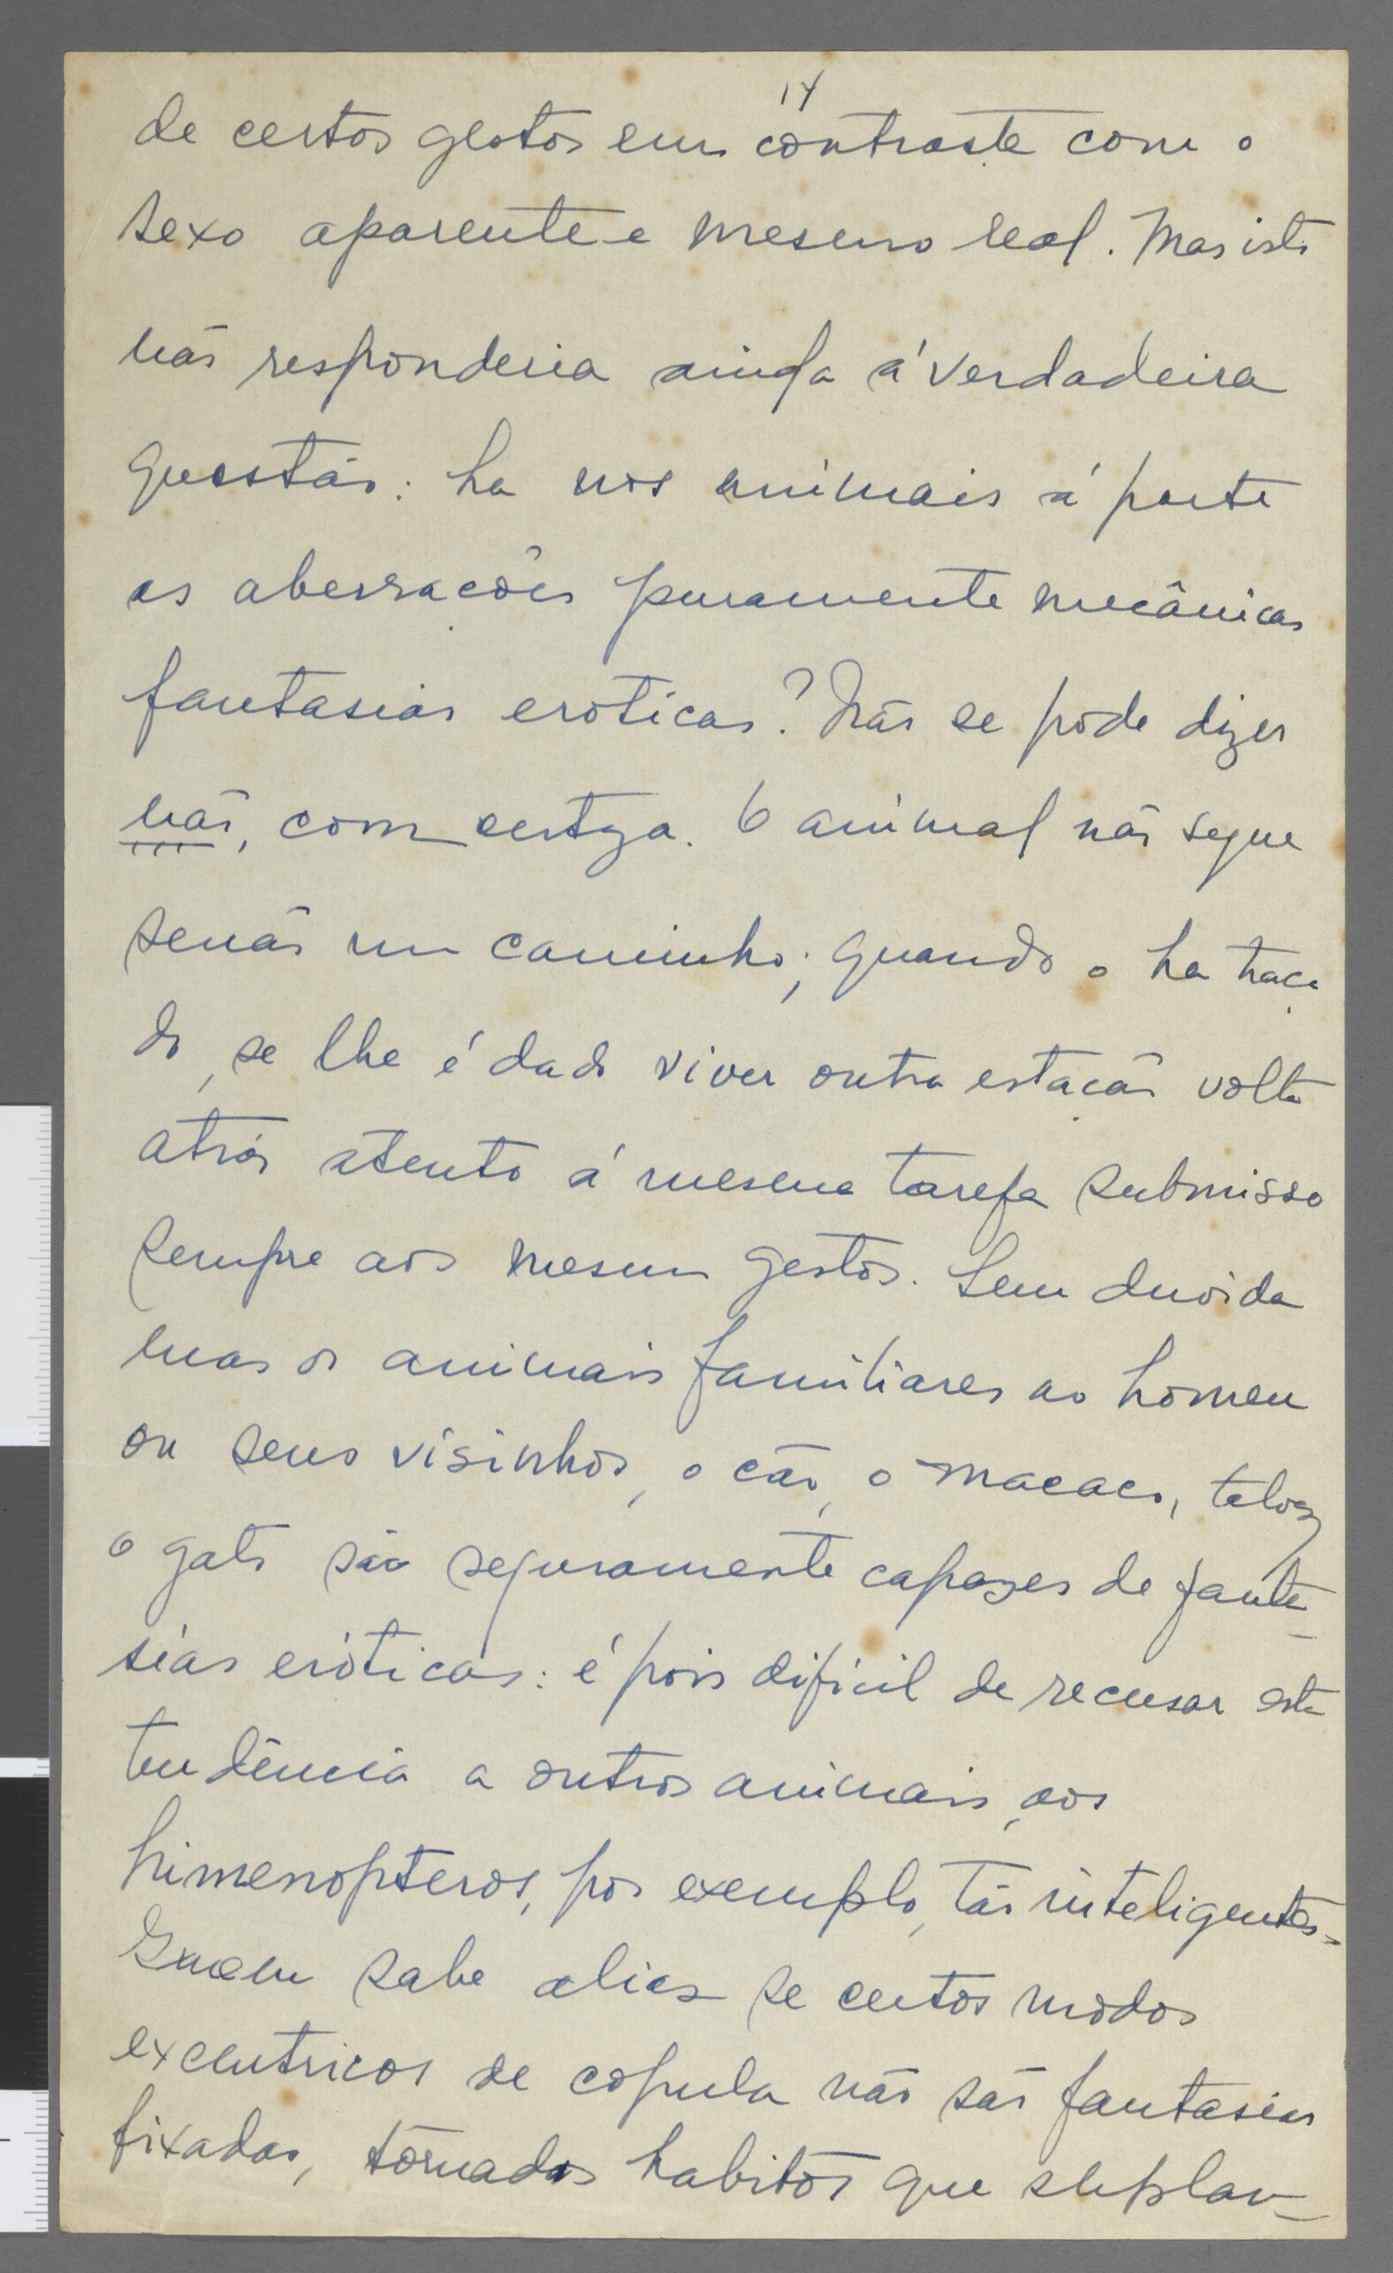 14
de certos gestos em contraste com o
sexo aparente e mesmo real. Mas isto
não responderia ainda á verdadeira
questão: ha nos animais á parte
as aberrações puramente mecânicas
fantasias eroticas? Não se póde dizer
não, com certeza. O animal não segue
senão um caminho; quando o ha traça
do, se lhe é dado viver outra estação volta
atrás atento á mesma tarefa submisso
sempre aos mesmos gestos. Sem duvida
mas os animais familiares ao homem
ou seus visinhos, o cão, o macaco, talvez
o gato são seguramente capazes de fanta-
sias eróticas: é pois dificil de recusar esta
tendência a outros animais, aos
himenopteros, por exemplo, tão inteligentes.
Quem sabe alias se certos modos
excentricos de copula não são fantasias
fixadas, tornados habitos que suplan-